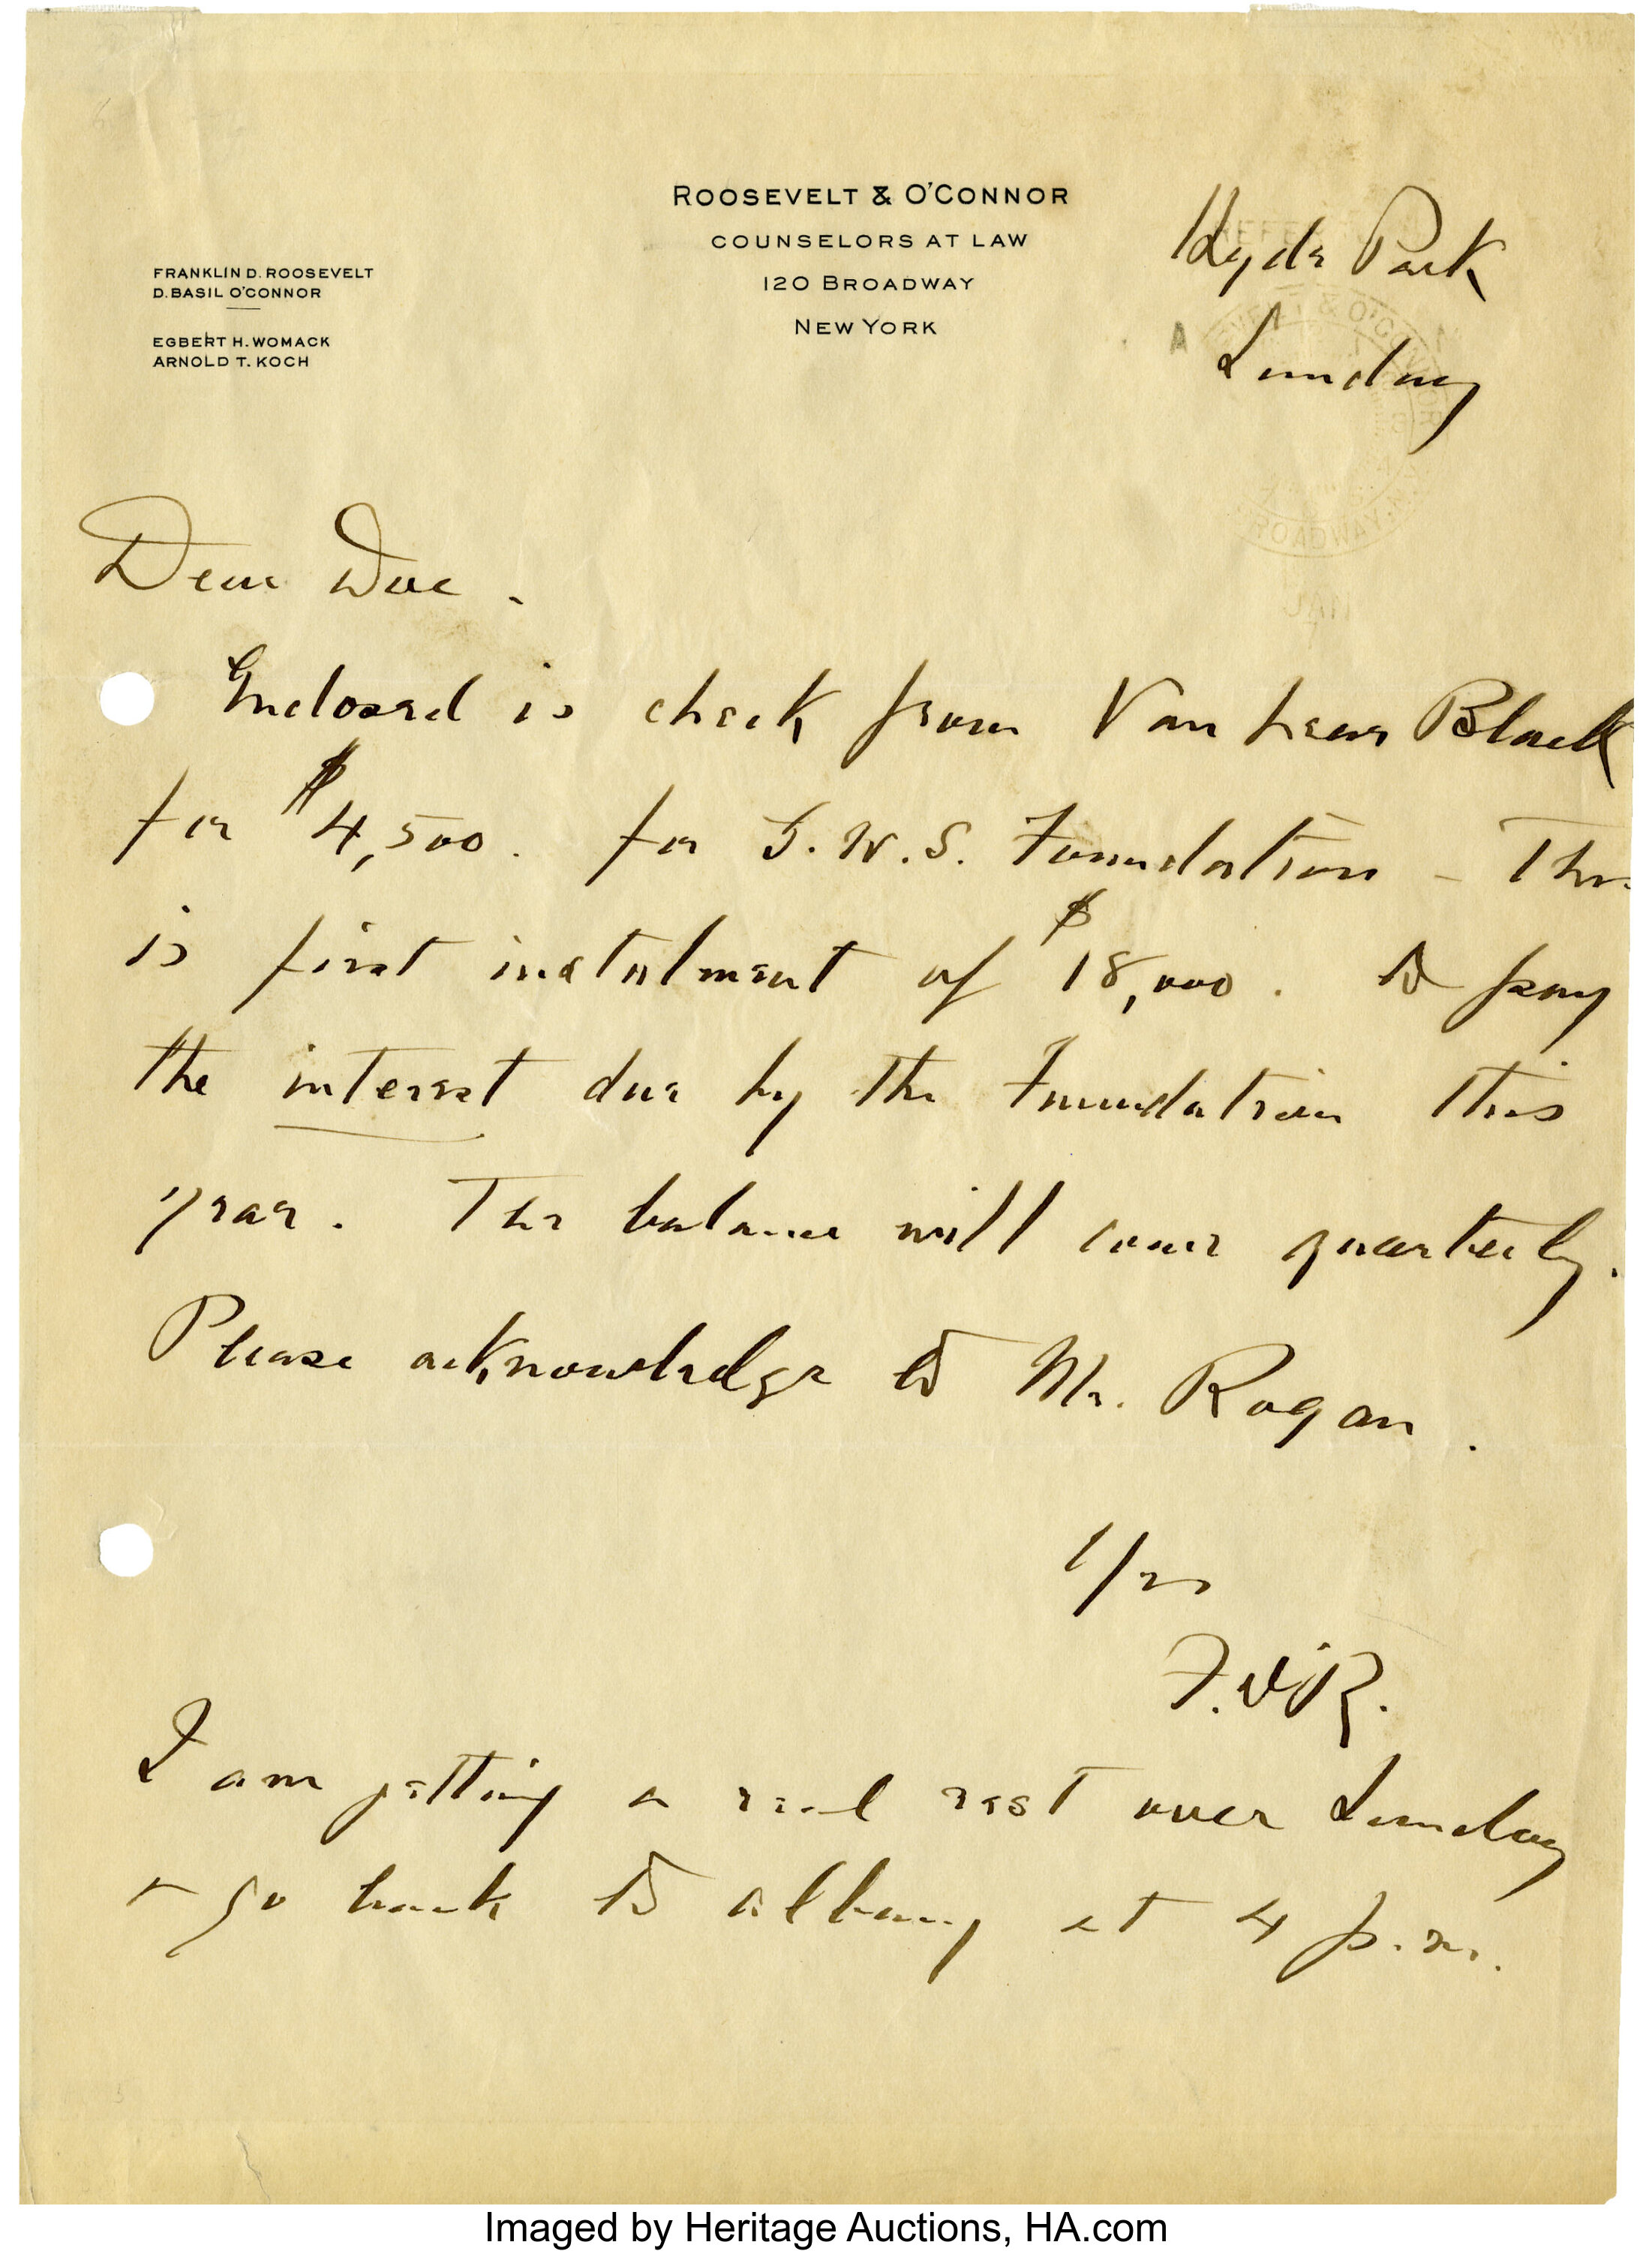 ROOSEVELT & O'CONNOR
COUNSELORS AT LAW
120 BROADWAY
NEW YORK
FRANKLIN D. ROOSEVELT
D. BASIL O'CONNOR
EGBERT H. WOMACK
ARNOLD T. KOCH
Hyde Park
Sunday
Dear Doc -
Enclosed is check from Van Lear Black
for $4,500. for G.W.S. Foundation - This
is first instalment of $18,000. to pay
the interest due by the Foundation this
year. The balance will come quarterly.
Please acknowledge to Mr. Rogan.
Yrs
F.D.R.
I am getting a real rest over Sunday
& go back to Albany at 4 p.m.
Imaged by Heritage Auctions, HA.com